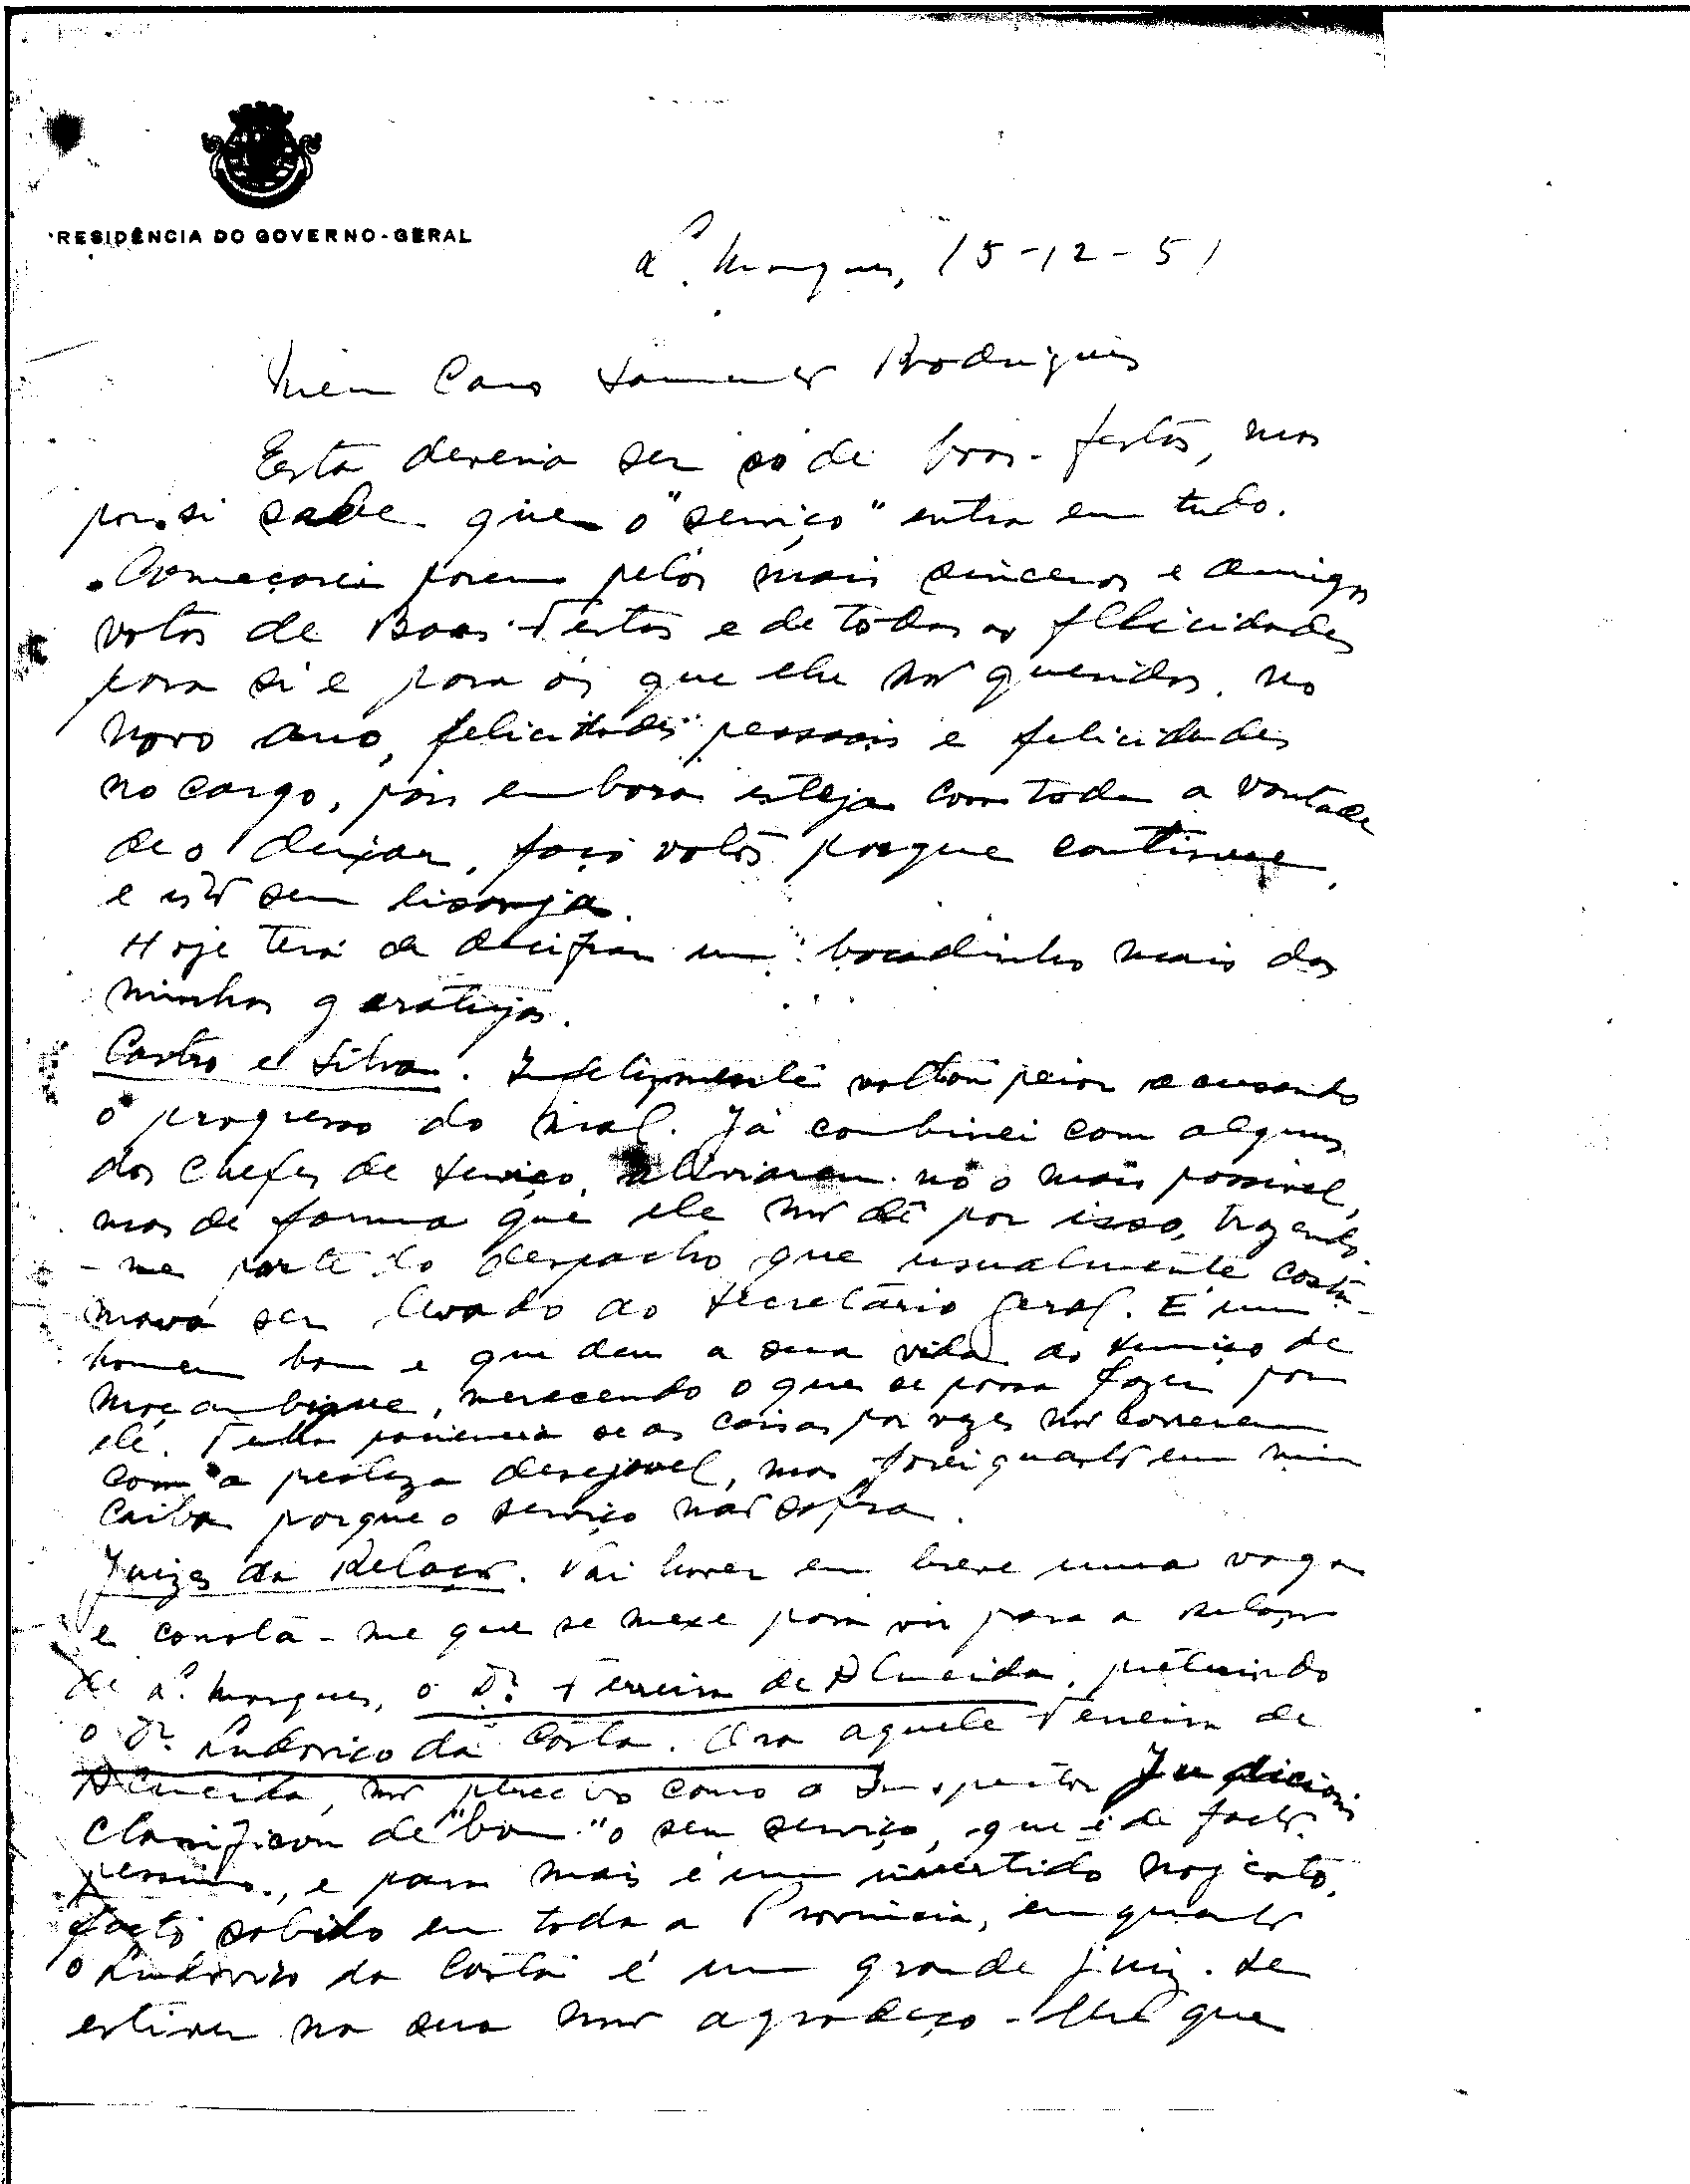 RESIDÊNCIA DO GOVERNO-GERAL
L. Marques, 15-12-51
Meu Caro Rodrigues
Esta deveria ser só de boas-festas, mas
por si sabe que o "serviço" entra em tudo.
Começarei porem pelos mais sinceros e amigos
votos de Boas-Festas e de todas as felicidades
para si e para os que lhe são queridos. No
novo ano, felicidades pessoais e felicidades
no cargo, pois embora esteja com toda a vontade
de o deixar, faço votos porque continue,
e isto sem lisonja.
Hoje terá de decifrar um bocadinho mais das
minhas garatujas.
Castro e Silva. Infelizmente voltou peior acusando
o progresso do mal. Já combinei com alguns
dos Chefes de Serviço, aliviarem-no o mais possivel,
mas de forma que ele não dê por isso, trazendo
-me parte do despacho que usualmente costu-
mava ser levado ao Secretário Geral. É um
homem bom e que deu a sua vida ao serviço de
Moçambique, merecendo o que se possa fazer por
ele. Tenha paciencia se as coisas por vezes não correrem
com a presteza desejavel, mas farei quanto em mim
caiba porque o serviço não sofra.
Juizes da Relação. Vai haver em breve uma vaga
e consta-me que se mexe para vir para a Relação
de L. Marques, o Dr. Ferreira de Almeida, preterindo
o Dr. Ludovico da Costa. Ora aquele Ferreira de
Almeida, não percebo como o Inspector Judiciario
classificou de "bom" o seu serviço, que é de facto
pessimo, e para mais é um invertido nojento,
facto sabido em toda a Provincia, emquanto
o Ludovico da Costa é um grande juiz. Se
estiver na sua mão agradeço-lhe que